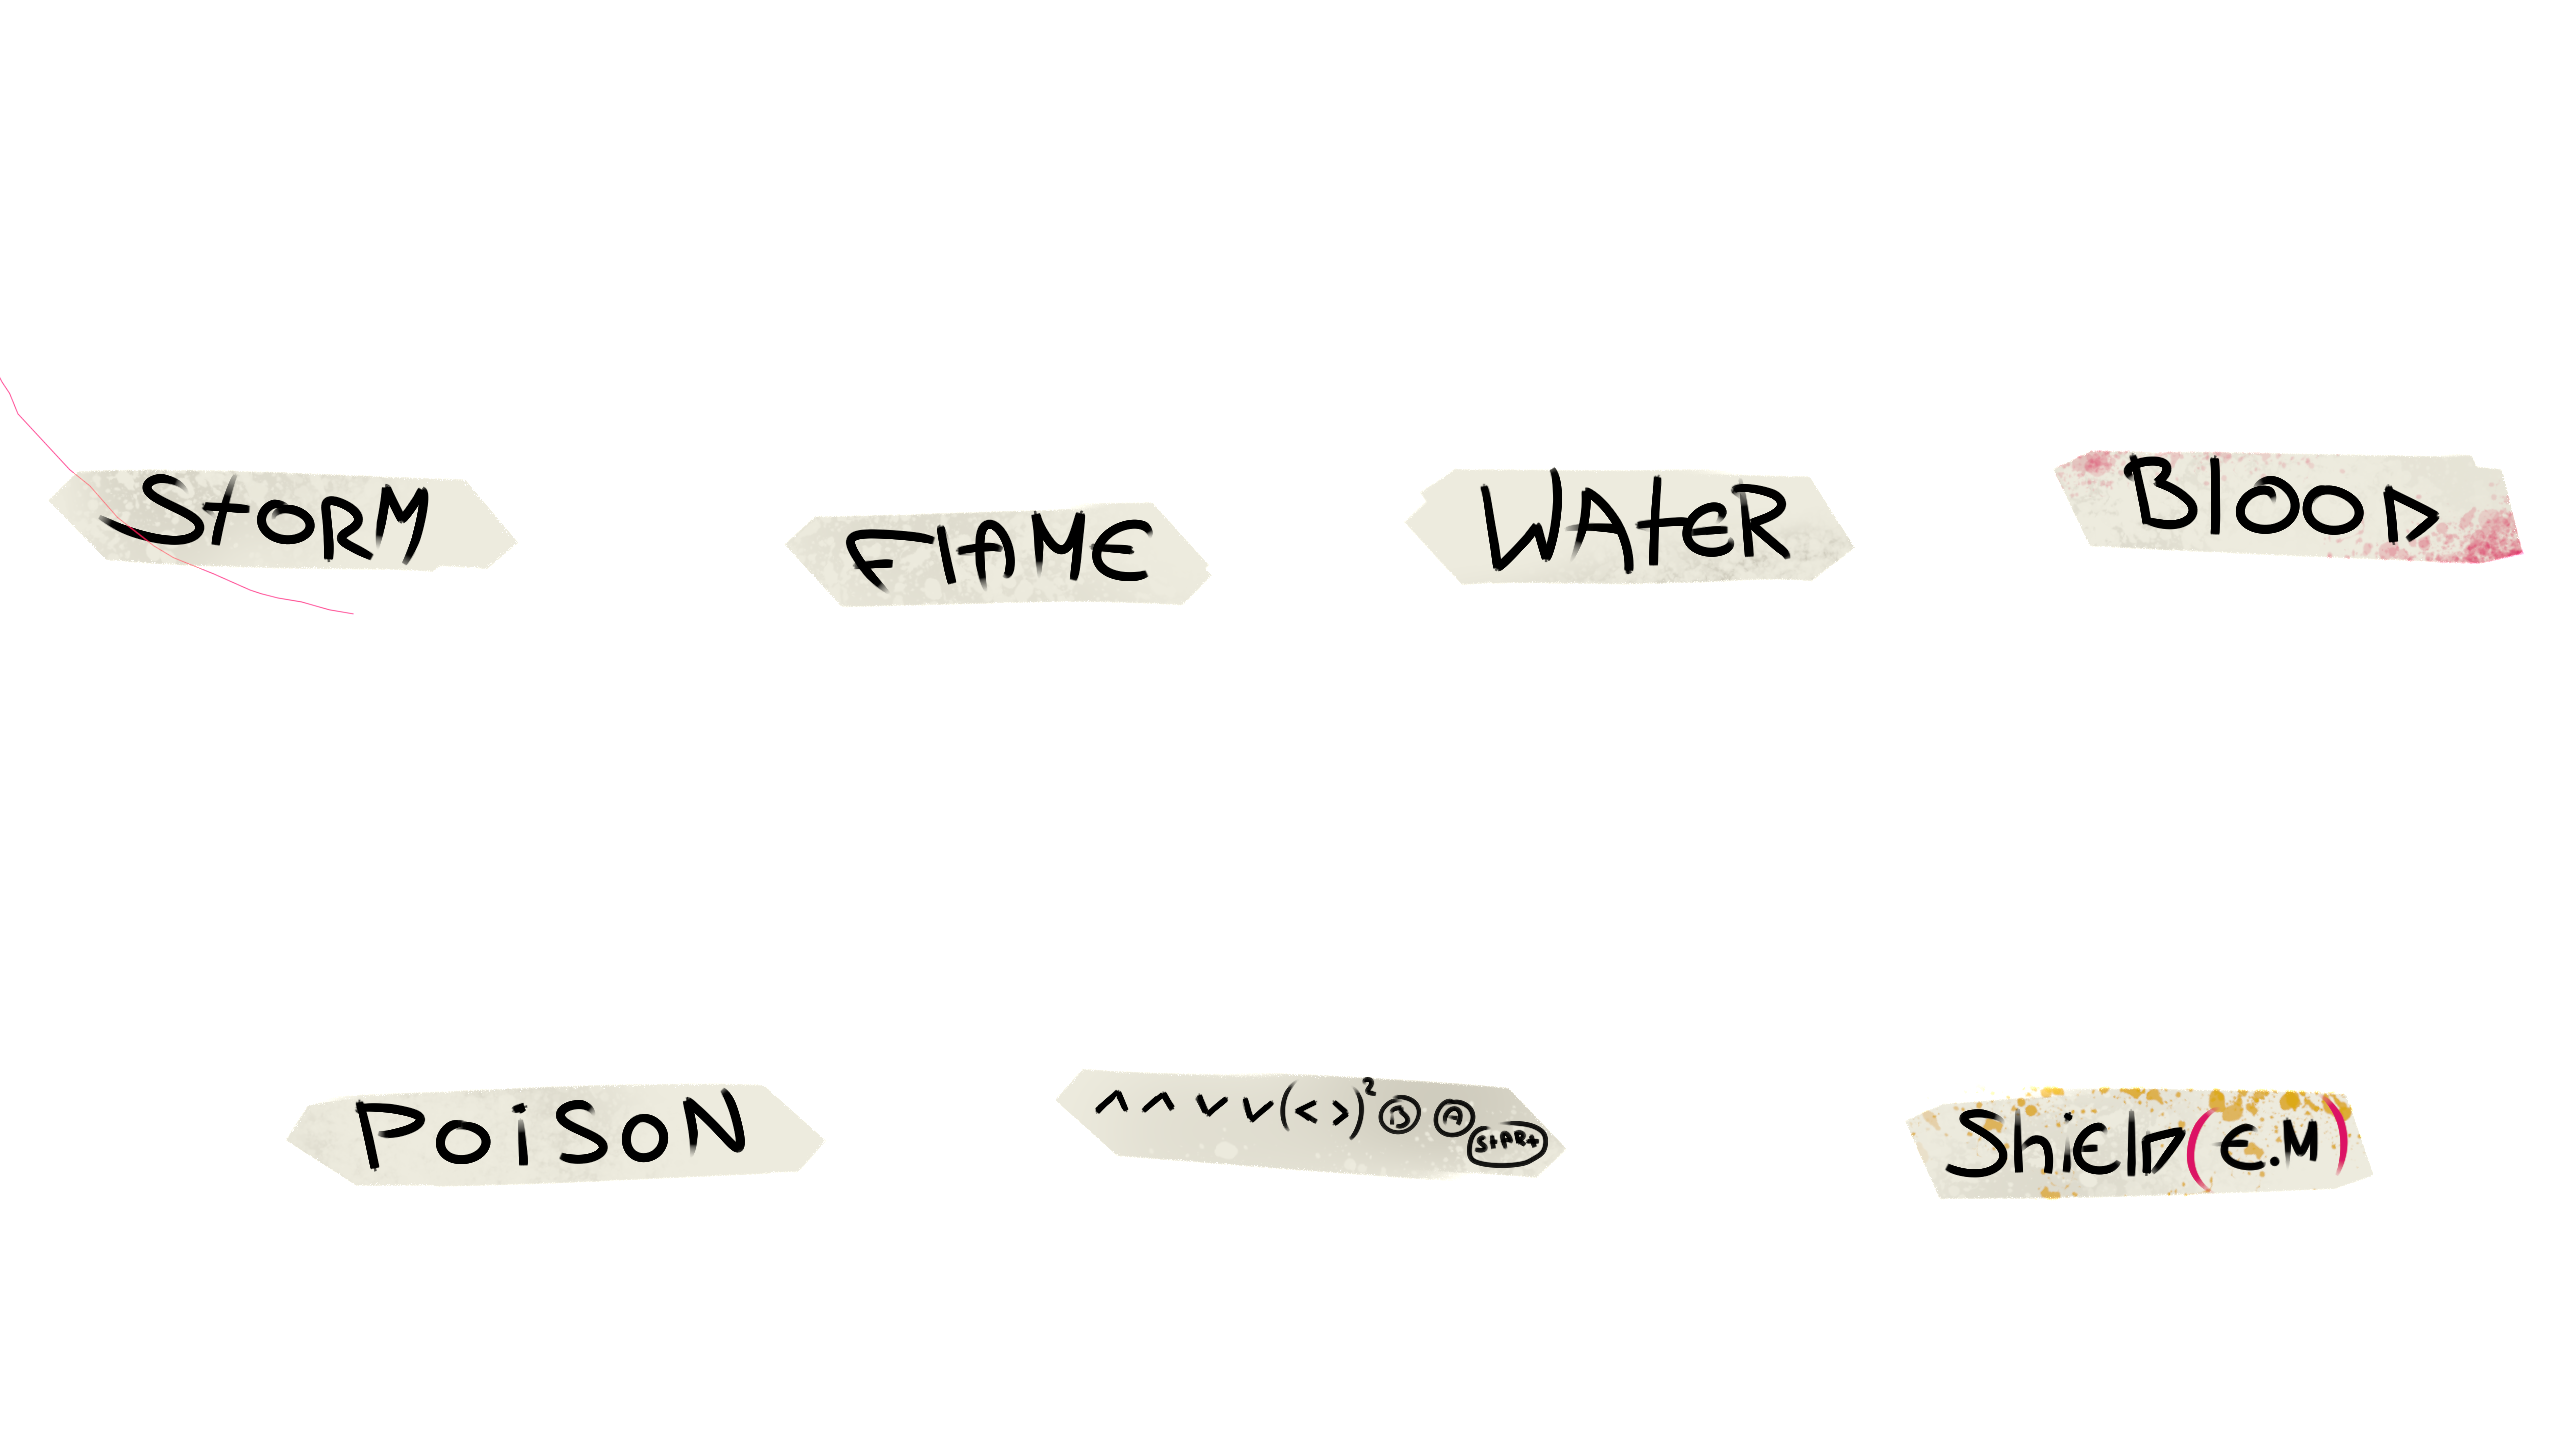 StORM
FlAME
WAtER
BlOOD
POiSON
^ ^ v v (< >)² B A StARt
ShiElD (E.M)